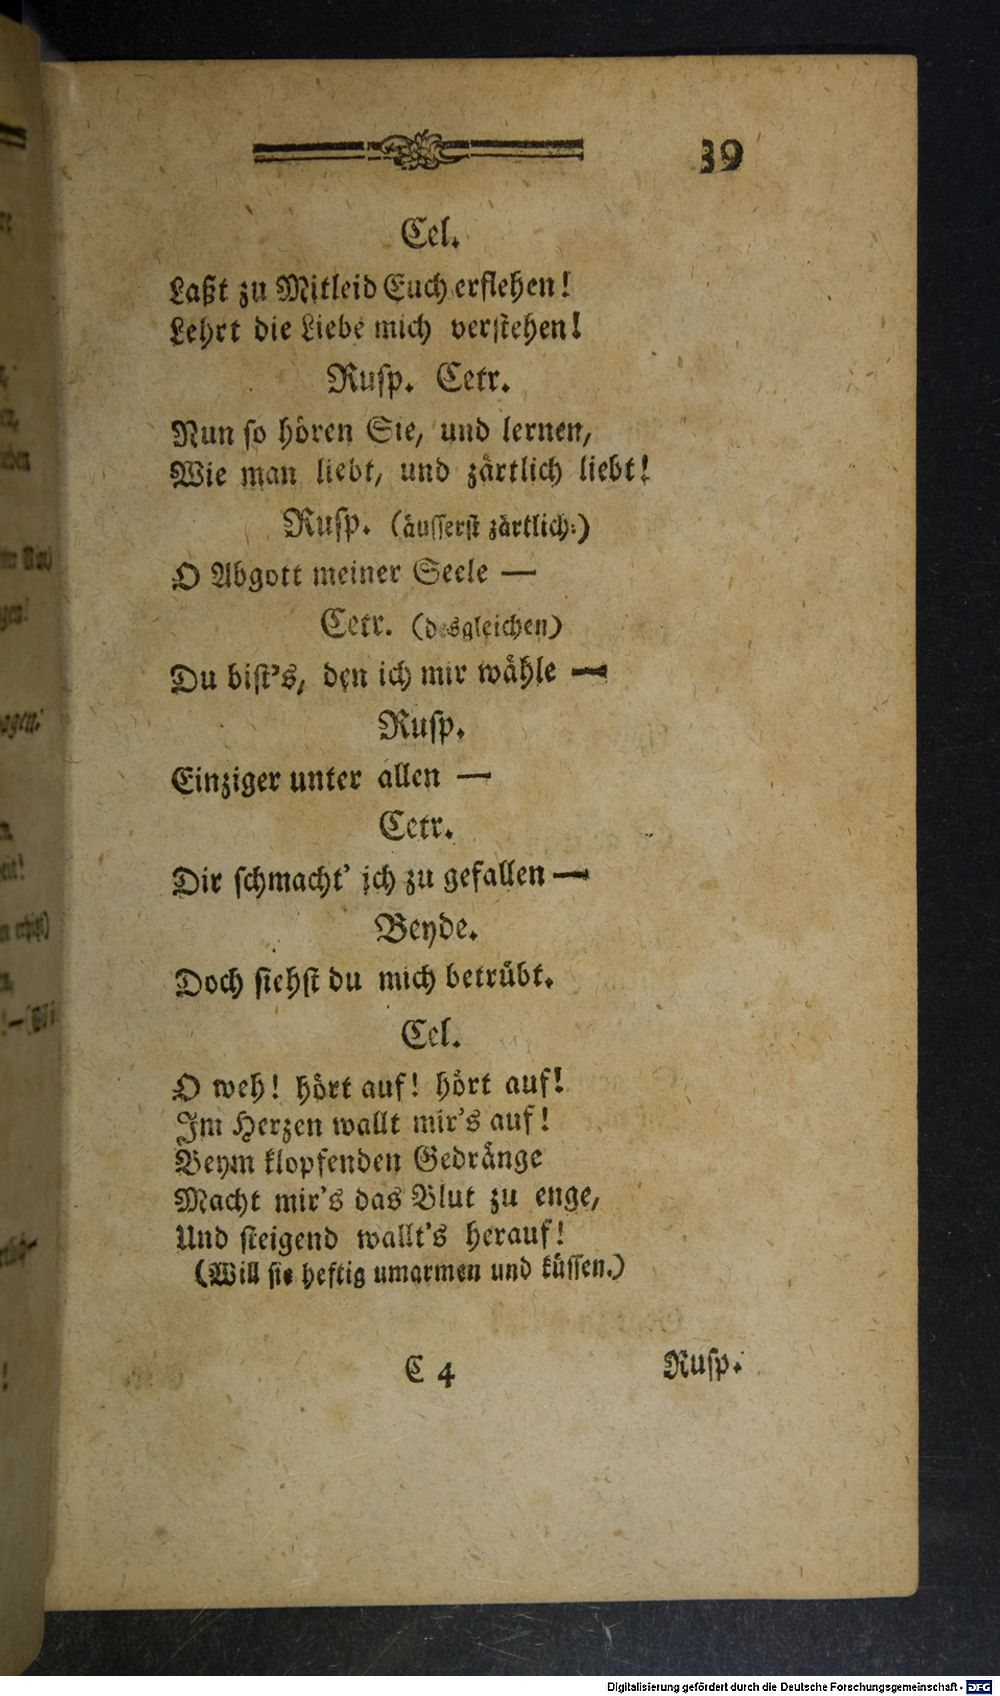 39
Cel.
Laßt zu Mitleid Euch erflehen!
Lehrt die Liebe mich verstehen!
Rusp. Cetr.
Nun so hören Sie, und lernen,
Wie man liebt, und zärtlich liebt!
Rusp. (äusserst zärtlich:)
O Abgott meiner Seele —
Cetr. (desgleichen)
Du bist's, den ich mir wähle —
Rusp.
Einziger unter allen —
Cetr.
Dir schmacht' ich zu gefallen —
Beyde.
Doch siehst du mich betrübt.
Cel.
O weh! hört auf! hört auf!
Im Herzen wallt mir's auf!
Beym klopfenden Gedränge
Macht mir's das Blut zu enge,
Und steigend wallt's herauf!
(Will sie heftig umarmen und küssen.)
C 4 Rusp.
Digitalisierung gefördert durch die Deutsche Forschungsgemeinschaft - DFG